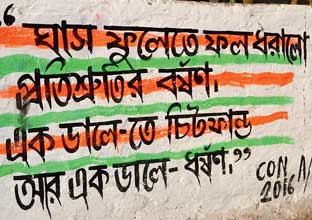 “ঘাস ফুলেতে ফল ধরালো
প্রতিশ্রুতির বর্ষণ।
এক ডালে-তে চিটফান্ড
আর এক ডালে- ধর্ষণ।”
CON
2016